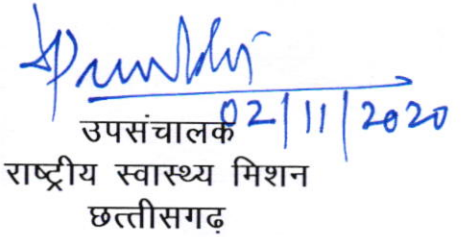 02/11/2020
उपसंचालक
राष्ट्रीय स्वास्थ्य मिशन
छत्तीसगढ़